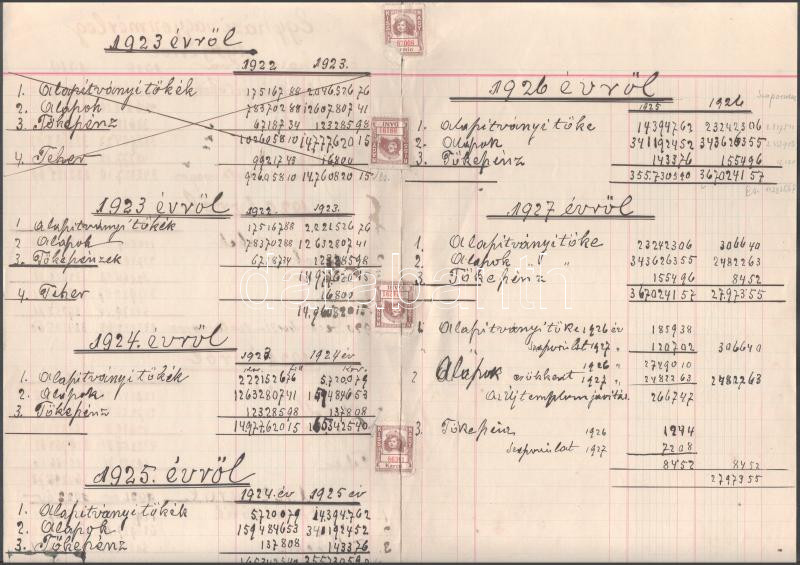 1923 évről
1922 1923.
1. Alapítványi tőkék 17516788 2046526 76
2. Alapok 78370288 12607807 41
3. Tőkepénz 6718734 12328598
102605810 147776 20 15
4. Teher 9921743 16800
92695810 14760820 15
1923 évről
1922. 1923.
1 Alapítványi tőkék 17516788 2221526 76
2 Alapok 78370288 12632807 41
3. Tőkepénzek 6718734 12328598
14977620 15
4. Teher 16800
14.9608 20 15
1924. évről
1923 1924 év
1. Alapítványi tőkék 222152676 5720079
2. Alapok 1263280741 159484653
3. Tőkepénz 12328598 137808
1497762015 165342540
1925. évről
1924. év 1925 év
1. Alapítványi tőkék 5720079 14394762
2. Alapok 159484653 341192452
3. Tőkepénz 137808 143376
165342540 355730590
1926 évről
1925 1926
1. Alapítványi tőke 14394762 23242306
2. Alapok 341192452 343626355
3. Tőkepénz 143376 155496
355.730590 367024157
1927 évről
1. Alapítványi tőke 23242306 306640
2. Alapok " " 343626355 2482263
3. Tőkepénz 155496 8452
367024157 2797355
1. Alapítványi tőke 1926 év 185938
Szaporulat 1927 " 120702 306640
2 Alapok 1926 " 2749010
csökkent 1927 " 2482263 2482263
Az új templom javítás 266747
3. Tőkepénz 1926 1244
Szaporulat 1927 7208
8452 8452
2797355
darabanth